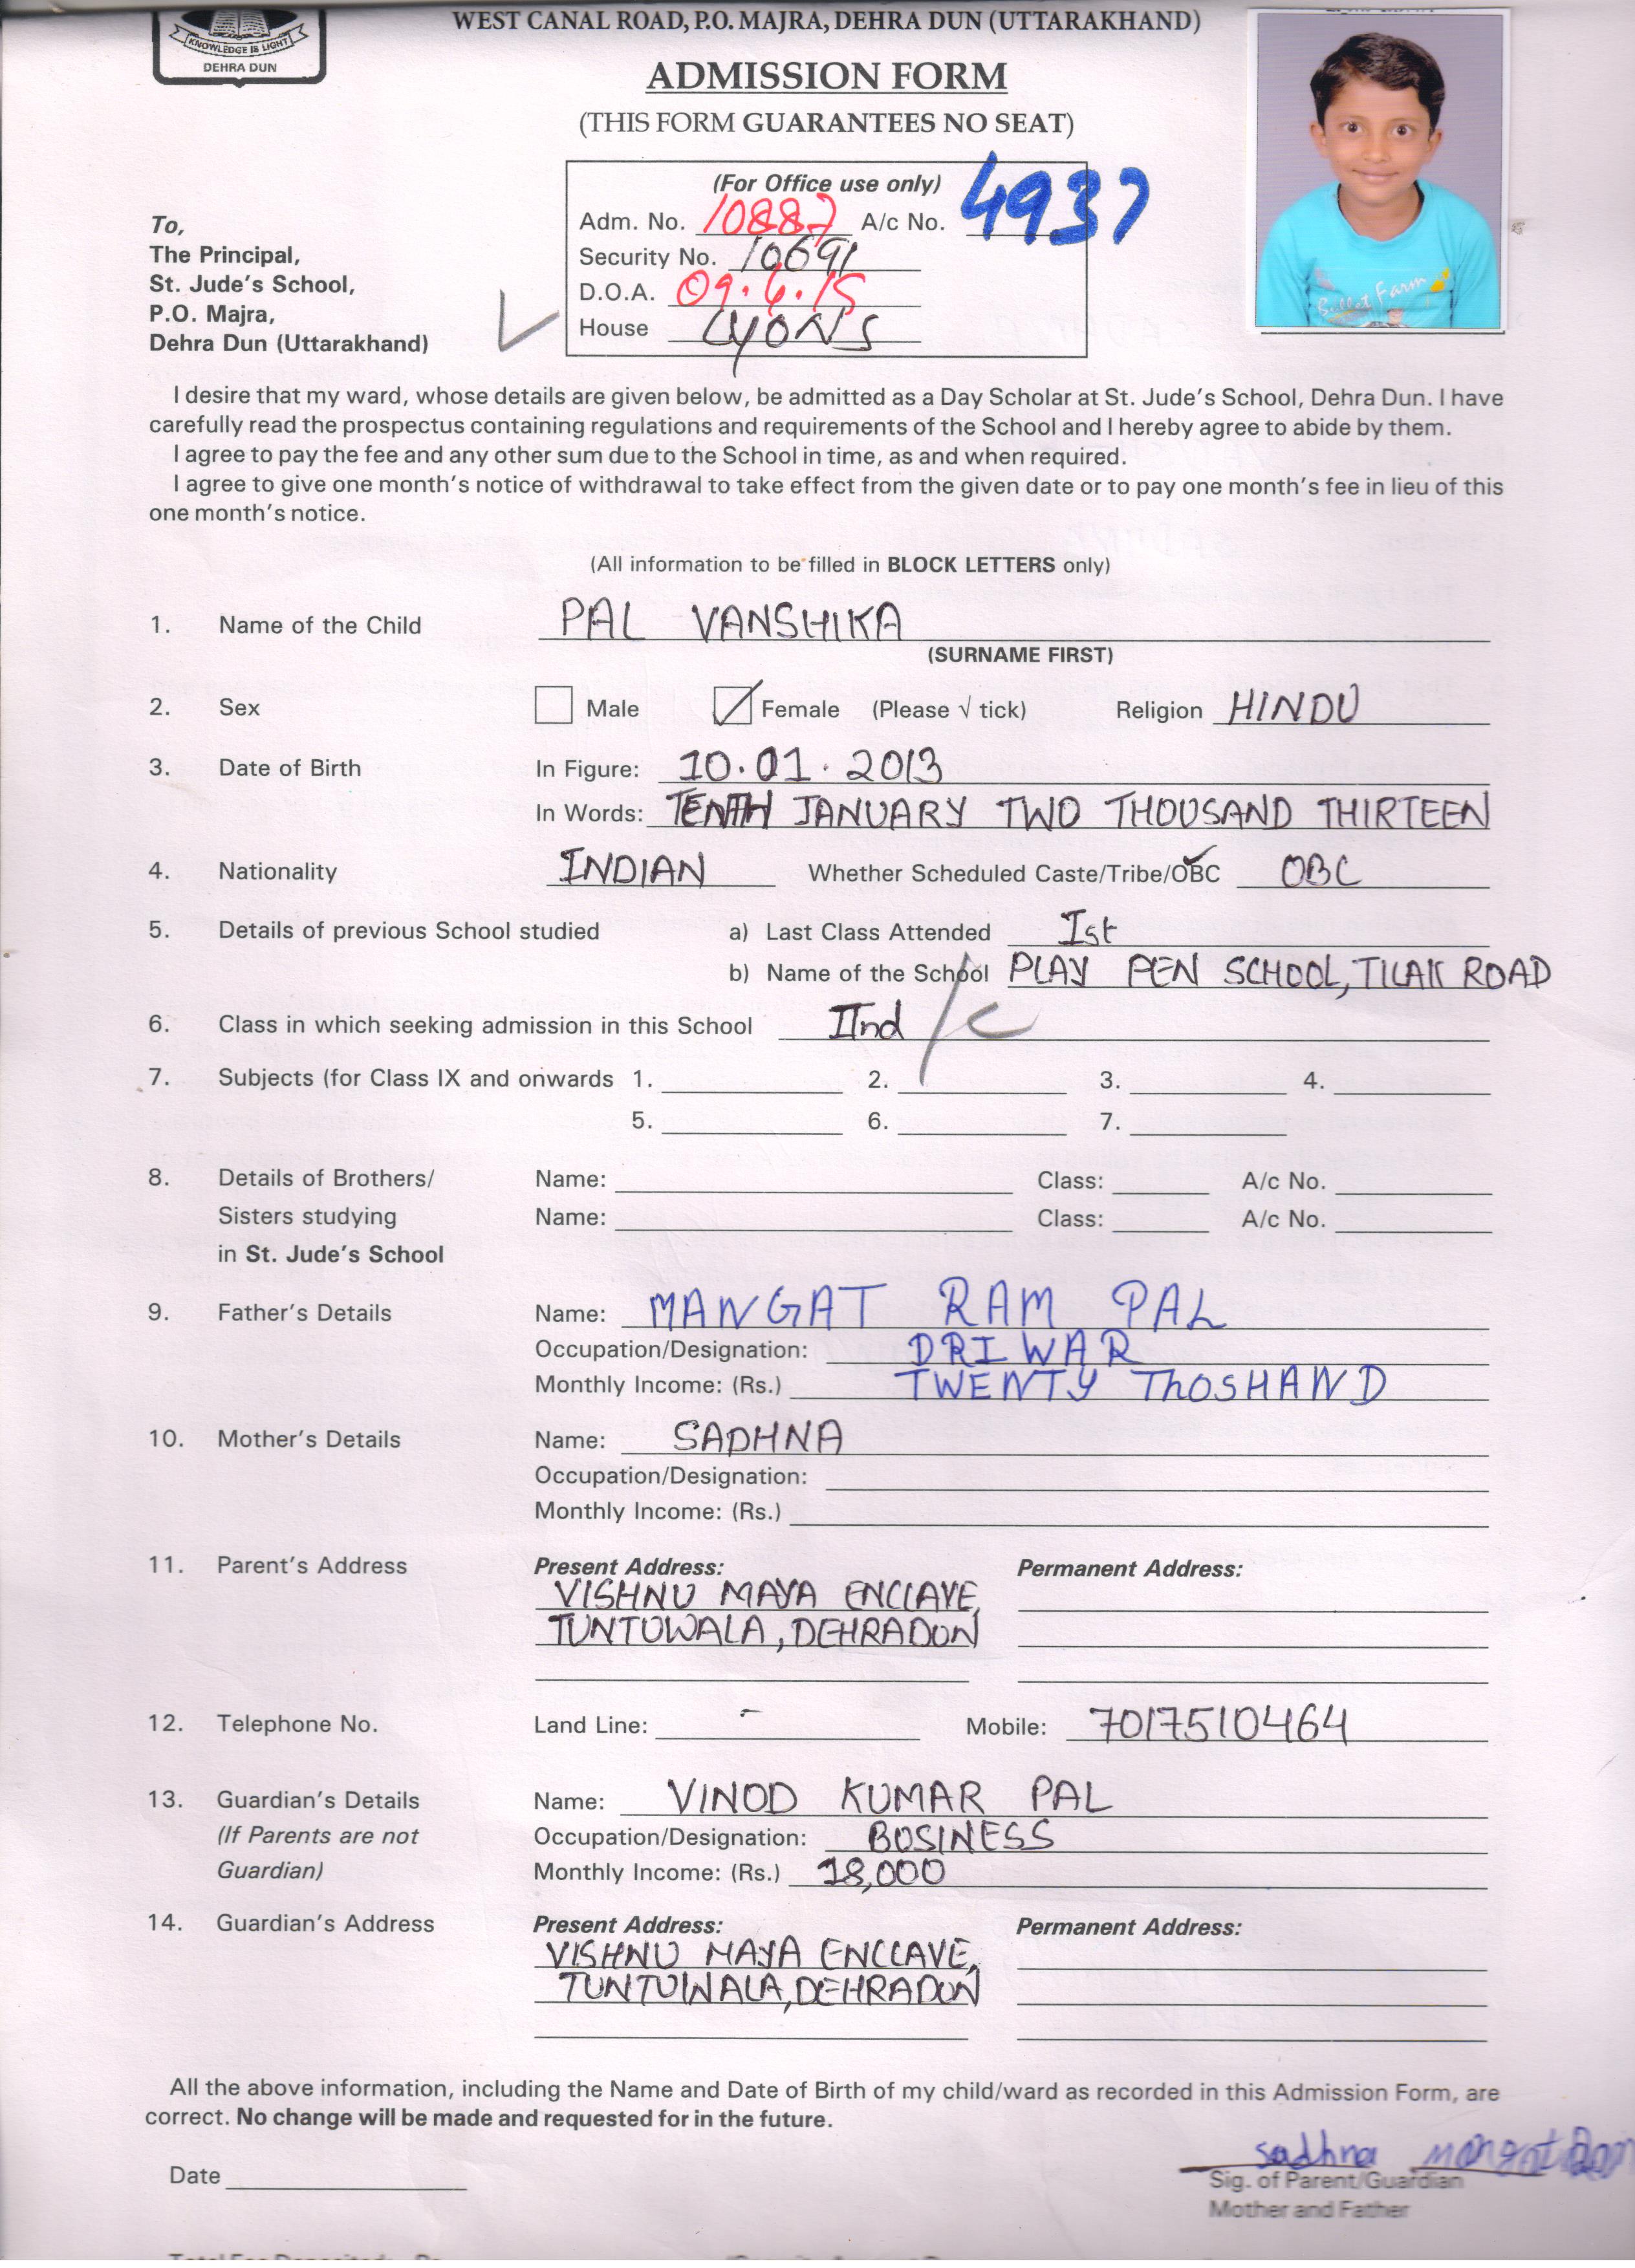 KNOWLEDGE IS LIGHT
DEHRA DUN
WEST CANAL ROAD, P.O. MAJRA, DEHRA DUN (UTTARAKHAND)
ADMISSION FORM
(THIS FORM GUARANTEES NO SEAT)
(For Office use only)
Adm. No. 10887 A/c No. 4937
Security No. 10691
D.O.A. 09.4.15
House LYONS
To,
The Principal,
St. Jude's School,
P.O. Majra,
Dehra Dun (Uttarakhand)
Bullet Farm
I desire that my ward, whose details are given below, be admitted as a Day Scholar at St. Jude's School, Dehra Dun. I have
carefully read the prospectus containing regulations and requirements of the School and I hereby agree to abide by them.
I agree to pay the fee and any other sum due to the School in time, as and when required.
I agree to give one month's notice of withdrawal to take effect from the given date or to pay one month's fee in lieu of this
one month's notice.
(All information to be filled in BLOCK LETTERS only)
1. Name of the Child PAL VANSHIKA
(SURNAME FIRST)
2. Sex Male Female (Please √ tick) Religion HINDU
3. Date of Birth In Figure: 10.01.2013
In Words: TENTH JANUARY TWO THOUSAND THIRTEEN
4. Nationality INDIAN Whether Scheduled Caste/Tribe/OBC OBC
5. Details of previous School studied a) Last Class Attended Ist
b) Name of the School PLAY PEN SCHOOL, TILAK ROAD
6. Class in which seeking admission in this School IInd /C
7. Subjects (for Class IX and onwards 1. 2. 3. 4.
5. 6. 7.
8. Details of Brothers/ Name: Class: A/c No.
Sisters studying Name: Class: A/c No.
in St. Jude's School
9. Father's Details Name: MANGAT RAM PAL
Occupation/Designation: DRIWAR
Monthly Income: (Rs.) TWENTY ThOSHAND
10. Mother's Details Name: SADHNA
Occupation/Designation:
Monthly Income: (Rs.)
11. Parent's Address Present Address: Permanent Address:
VISHNU MAYA ENCLAVE,
TUNTUWALA, DEHRADUN
12. Telephone No. Land Line: - Mobile: 7017510464
13. Guardian's Details Name: VINOD KUMAR PAL
(If Parents are not Occupation/Designation: BUSINESS
Guardian) Monthly Income: (Rs.) 18,000
14. Guardian's Address Present Address: Permanent Address:
VISHNU MAYA ENCLAVE,
TUNTUWALA, DEHRADUN
All the above information, including the Name and Date of Birth of my child/ward as recorded in this Admission Form, are
correct. No change will be made and requested for in the future.
sadhna mangat Ram
Date Sig. of Parent/Guardian
Mother and Father